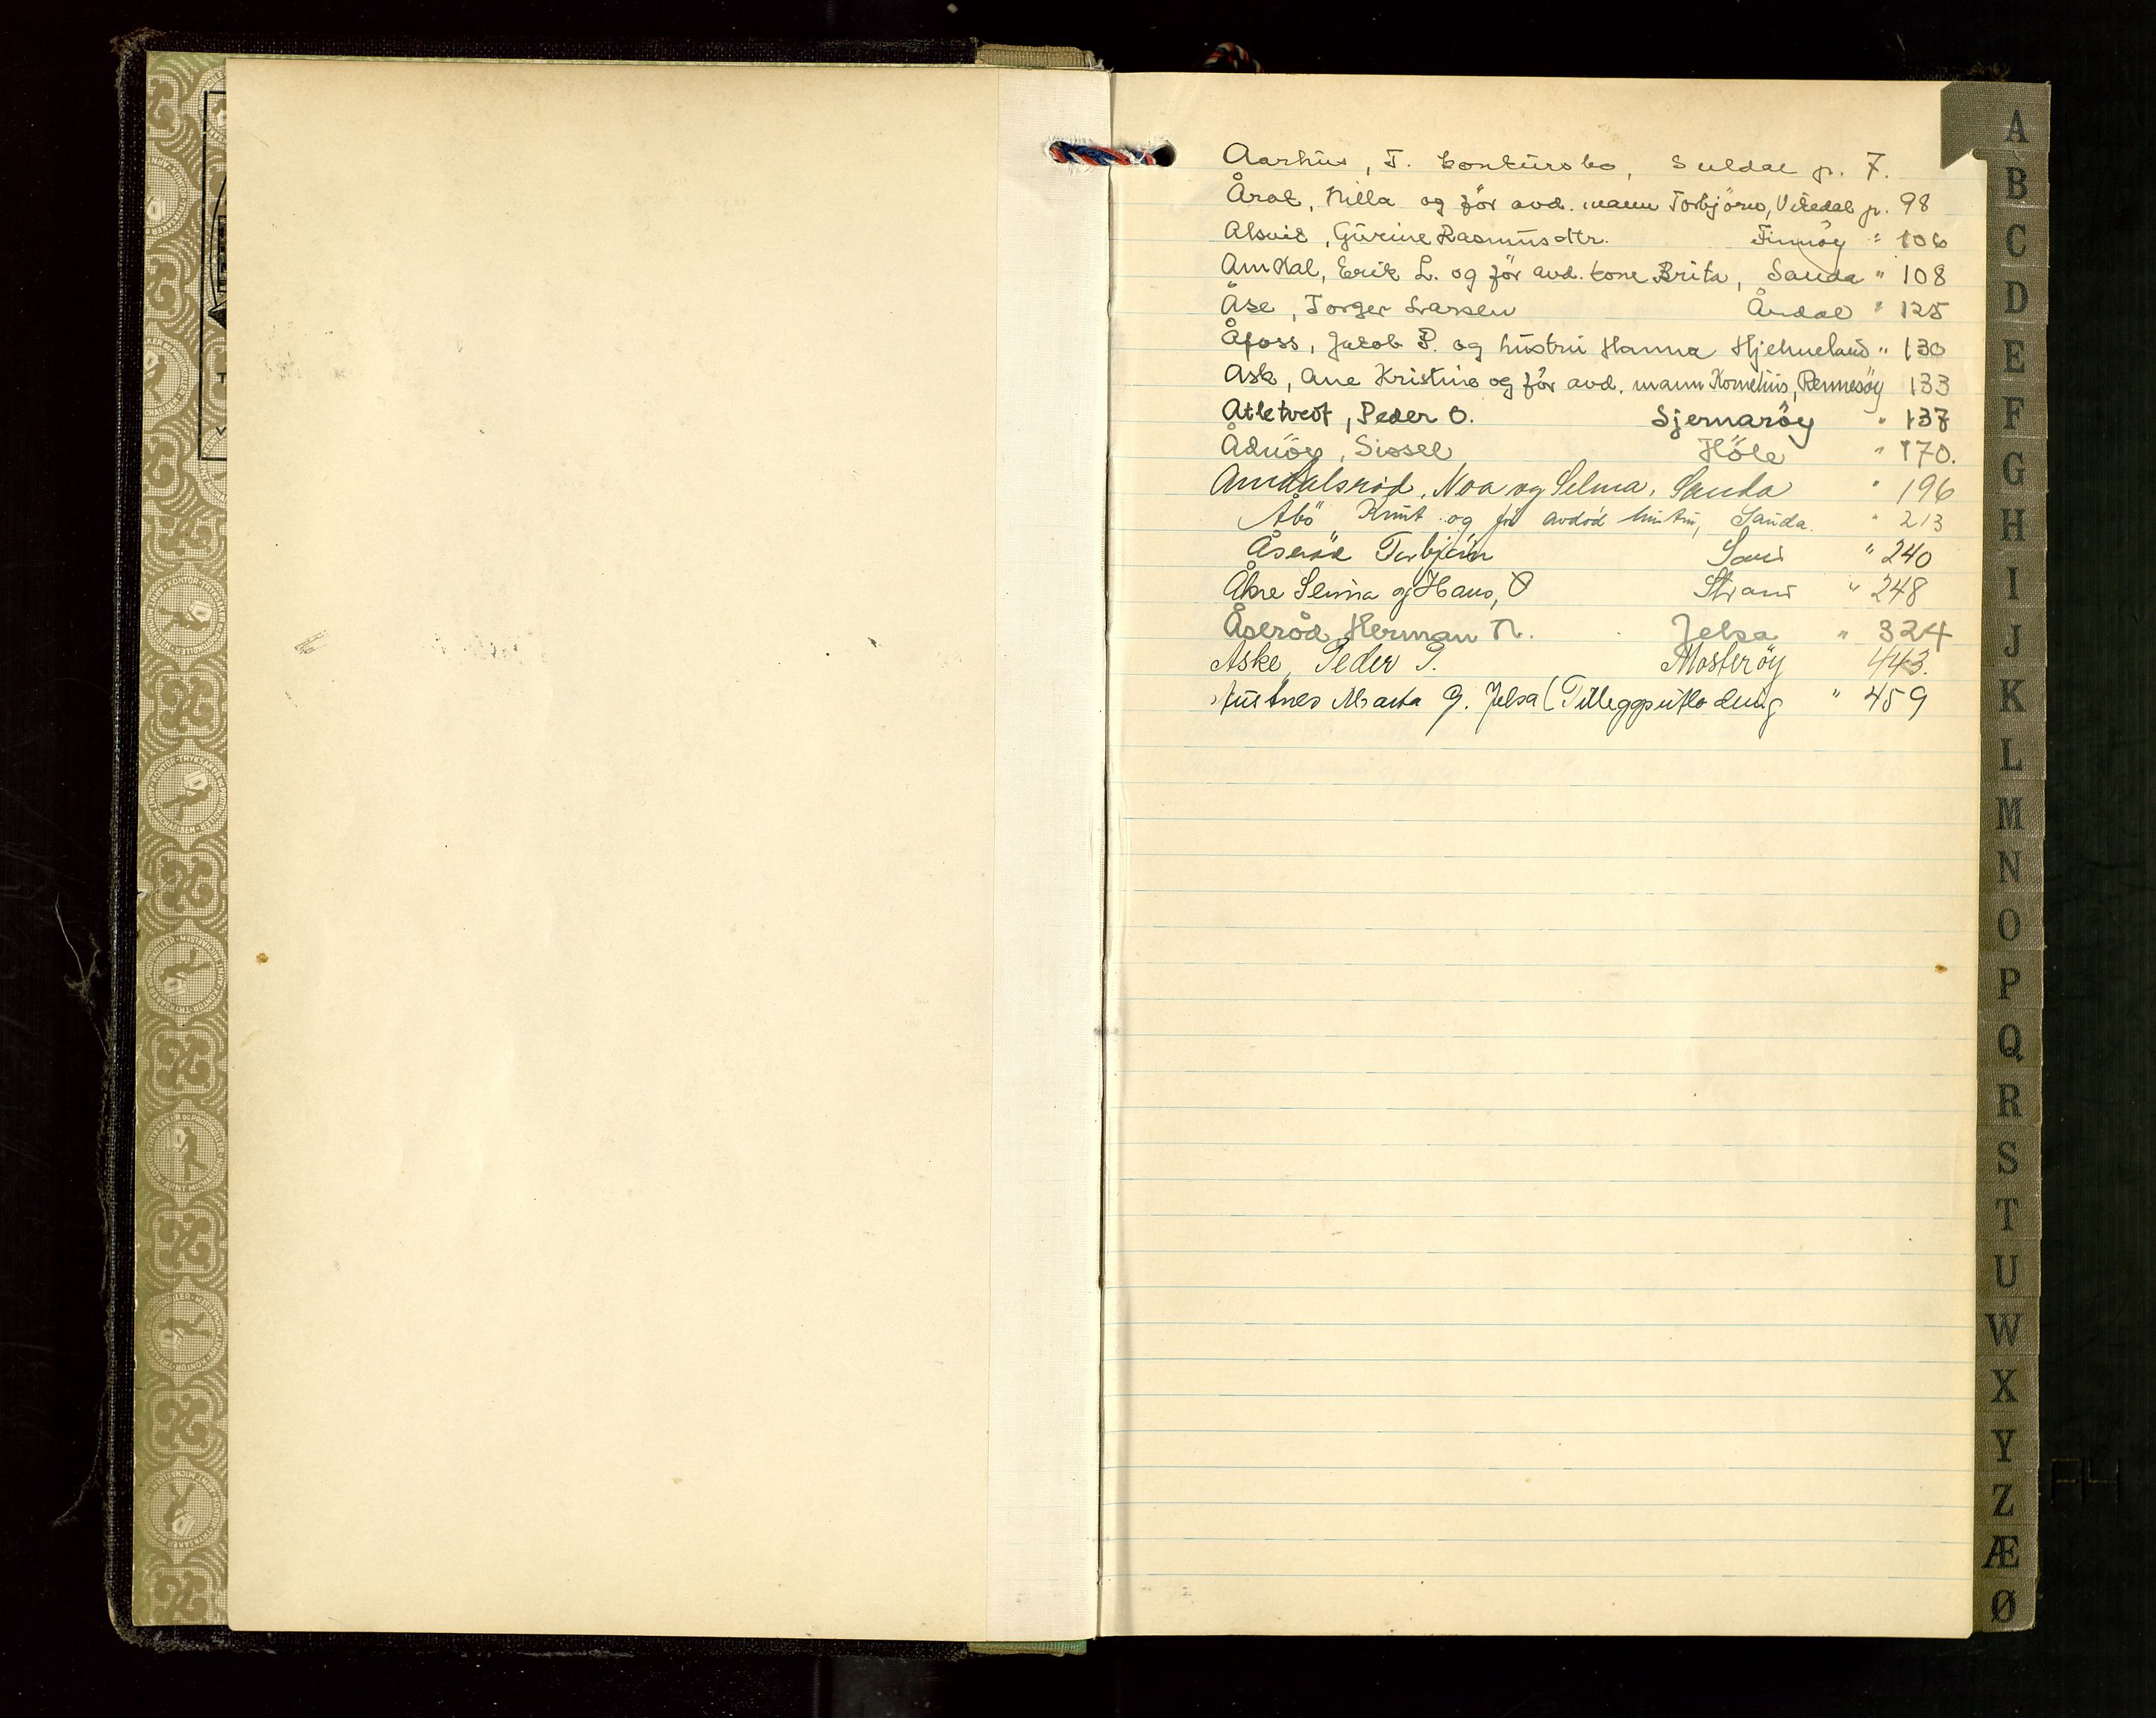 Aarhus, T. konkursbo, Suldal p. 7.
Årak, Nilla og för avd. mann Torbjörn, Vikedal p. 98
Alsvik, Gurine Rasmusdtr. Finnöy " 106
Amdal, Erik L. og för avd. kone Brita, Sauda " 108
Åse, Torger Larsen Årdal " 125
Åfoss, Jakob P. og hustru Hanna Hjelmeland " 130
Ask, Ane Kristine og för avd. mann Kornelius, Rennesöy 133
Atletveit, Peder O. Sjernaröy " 137
Ådnöy, Sissel Höle " 170.
Amdalsröd, Noa og Selma, Sauda " 196
Åbö, Knut og för avdöd hustru, Sauda. " 213
Åseröd Torbjörn Sand " 240
Åkre Selma og Hans, Strand " 248
Åseröd, Herman N. Jelsa " 324
Aske, Peder P. Mosteröy 443.
Austnes Marta G. Jelsa (Tilleggsutlodning " 459
A
B
C
D
E
F
G
H
I
J
K
L
M
N
O
P
Q
R
S
T
U
W
X
Y
Z
Æ
Ø